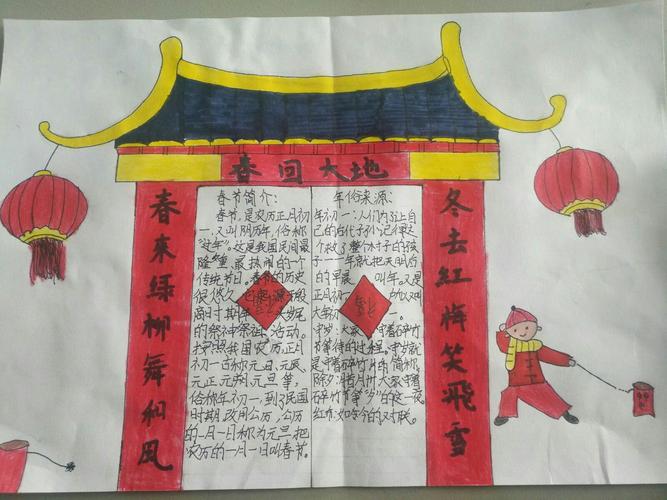 春回大地
春来绿柳舞和风
冬去红梅笑飞雪
春节简介：
春节，是农历正月初
一，又叫阴历年，俗称
“过年”。这是我国民间最
隆重、最热闹的一个
传统节日。春节的历史
很悠久，起源
商时期年岁尾
的祭神祭祖活动。
按照我国农历，正月
初一古称元日、元辰、
元正、元朔、元旦等，
俗称年初一，到了民国
时期，改用公历，公历
的一月一日称为元旦，把
农历的一月一日叫春节。
年俗来源：
年初一：人们为了让自
己的后代子孙记住这
个救了整个村子的孩
子 一年就把天明后
的早晨 叫年。又是
正月初 又叫
大年初
守岁：大家守着碎竹
节等待的过程。守岁就
是守着碎竹片的简称，
除夕：
碎竹节守岁的这一夜